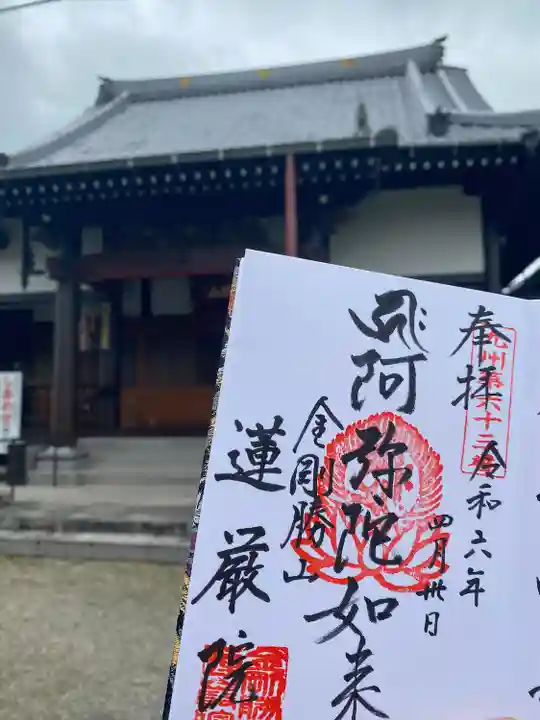 奉拝
九州第六十二番
令和六年
四月卅日
阿弥陀如来
金剛勝山
蓮厳院